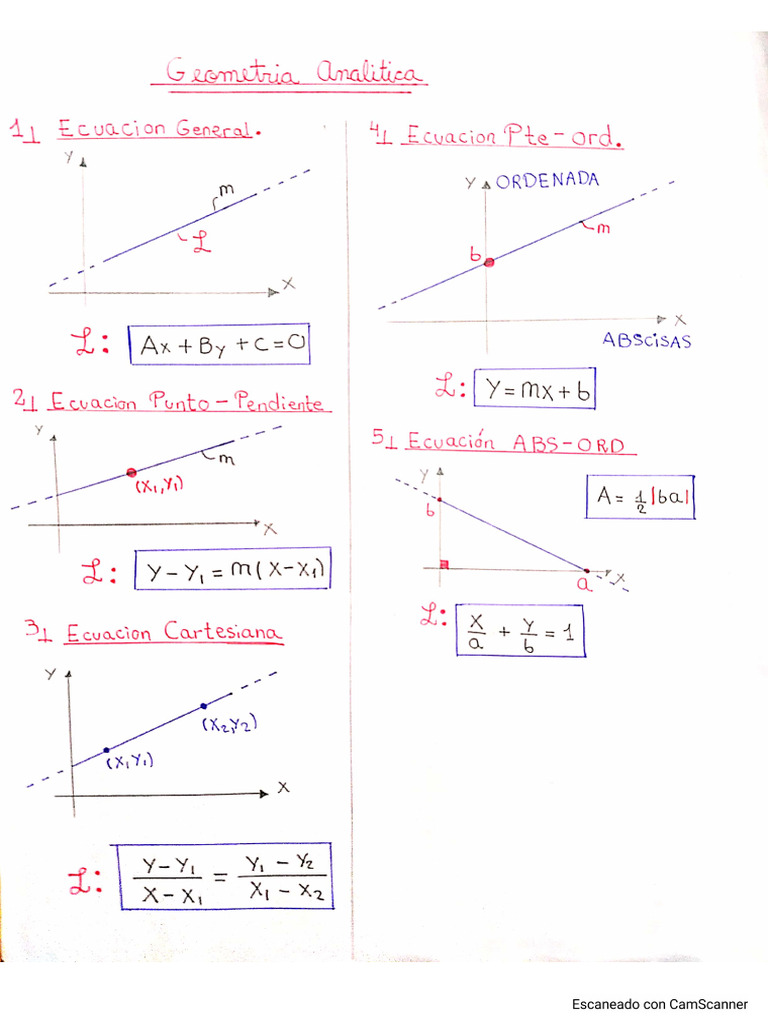 Geometria Analitica
1⅃ Ecuacion General.
Y
m
L
X
L: Ax + By + C = 0
2⅃ Ecuacion Punto - Pendiente
Y
m
(X₁, Y₁)
X
L: Y - Y₁ = m(X - X₁)
3⅃ Ecuacion Cartesiana
Y
(X₂, Y₂)
(X₁ Y₁)
X
L: (Y - Y₁)/(X - X₁) = (Y₁ - Y₂)/(X₁ - X₂)
4⅃ Ecuacion Pte - ord.
Y ORDENADA
m
b
X
ABSCISAS
L: Y = mx + b
5⅃ Ecuación ABS - ORD
Y
A = 1/2 |ba|
b
a
X
L: X/a + Y/b = 1
Escaneado con CamScanner